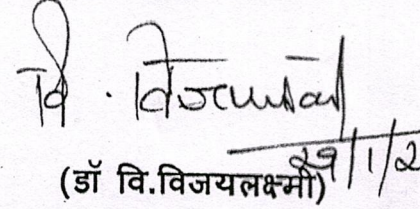 वि. विजयलक्ष्मी
२९/1/2
(डॉ वि.विजयलक्ष्मी)